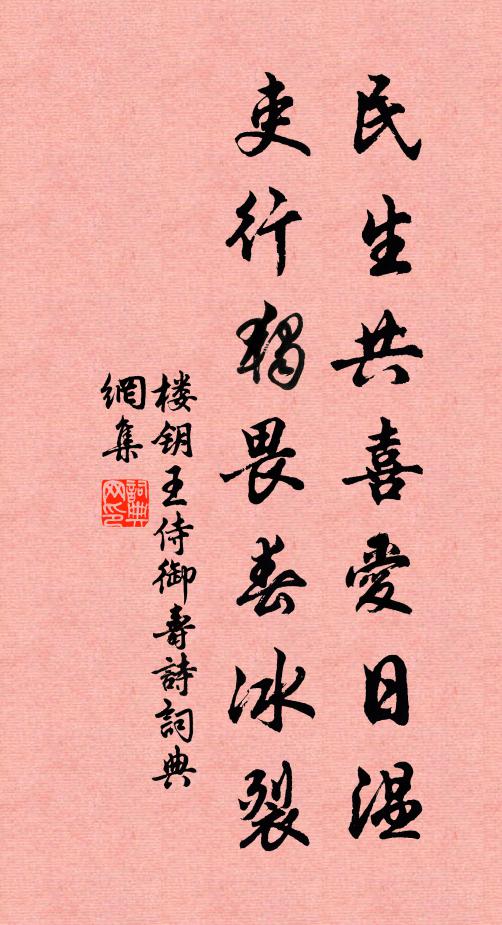 民生共喜愛日温
吏行獨畏春冰裂
楼钥王侍御壽詩詞典
網集
詞典
网印